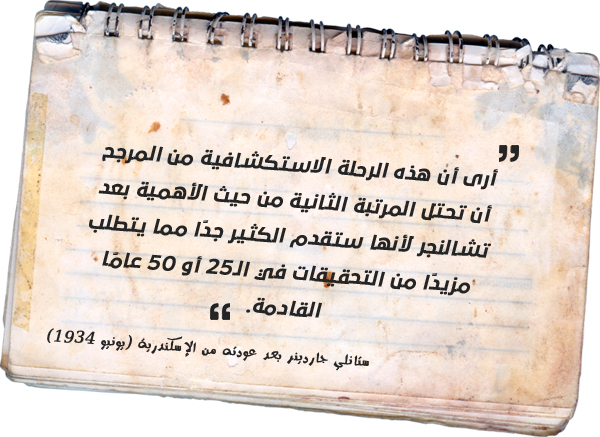 ”
أرى أن هذه الرحلة الاستكشافية من المرجح
أن تحتل المرتبة الثانية من حيث الأهمية بعد
تشالنجر لأنها ستقدم الكثير جدًا مما يتطلب
مزيدًا من التحقيقات في الـ25 أو 50 عامًا
القادمة. “
ستانلي جاردينر بعد عودته من الإسكندرية (يونيو 1934)